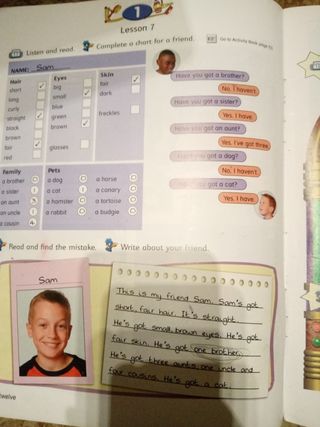 1
Lesson 7
Listen and read. Complete a chart for a friend.
Go to Activity Book page
NAME: Sam
Hair
short
long
curly
straight
black
brown
fair
red
Eyes
big
small
blue
green
brown
glasses
Skin
fair
dark
freckles
Have you got a brother?
No, I haven't.
Have you got a sister?
Yes, I have.
Have you got an aunt?
Yes, I've got three.
you got a dog?
No, I haven't.
got a cat?
Yes, I have.
Family
a brother 0
a sister 1
an aunt 3
an uncle 1
a cousin 4
Pets
a dog 0
a cat 1
a hamster 0
a rabbit 0
a horse 0
a canary 0
a tortoise 0
a budgie 0
Read and find the mistake. Write about your friend.
Sam
This is my friend Sam. Sam's got
short, fair hair. It's straight.
He's got small, brown eyes. He's got
fair skin. He's got one brother.
He's got three aunts, one uncle and
four cousins. He's got a cat.
twelve